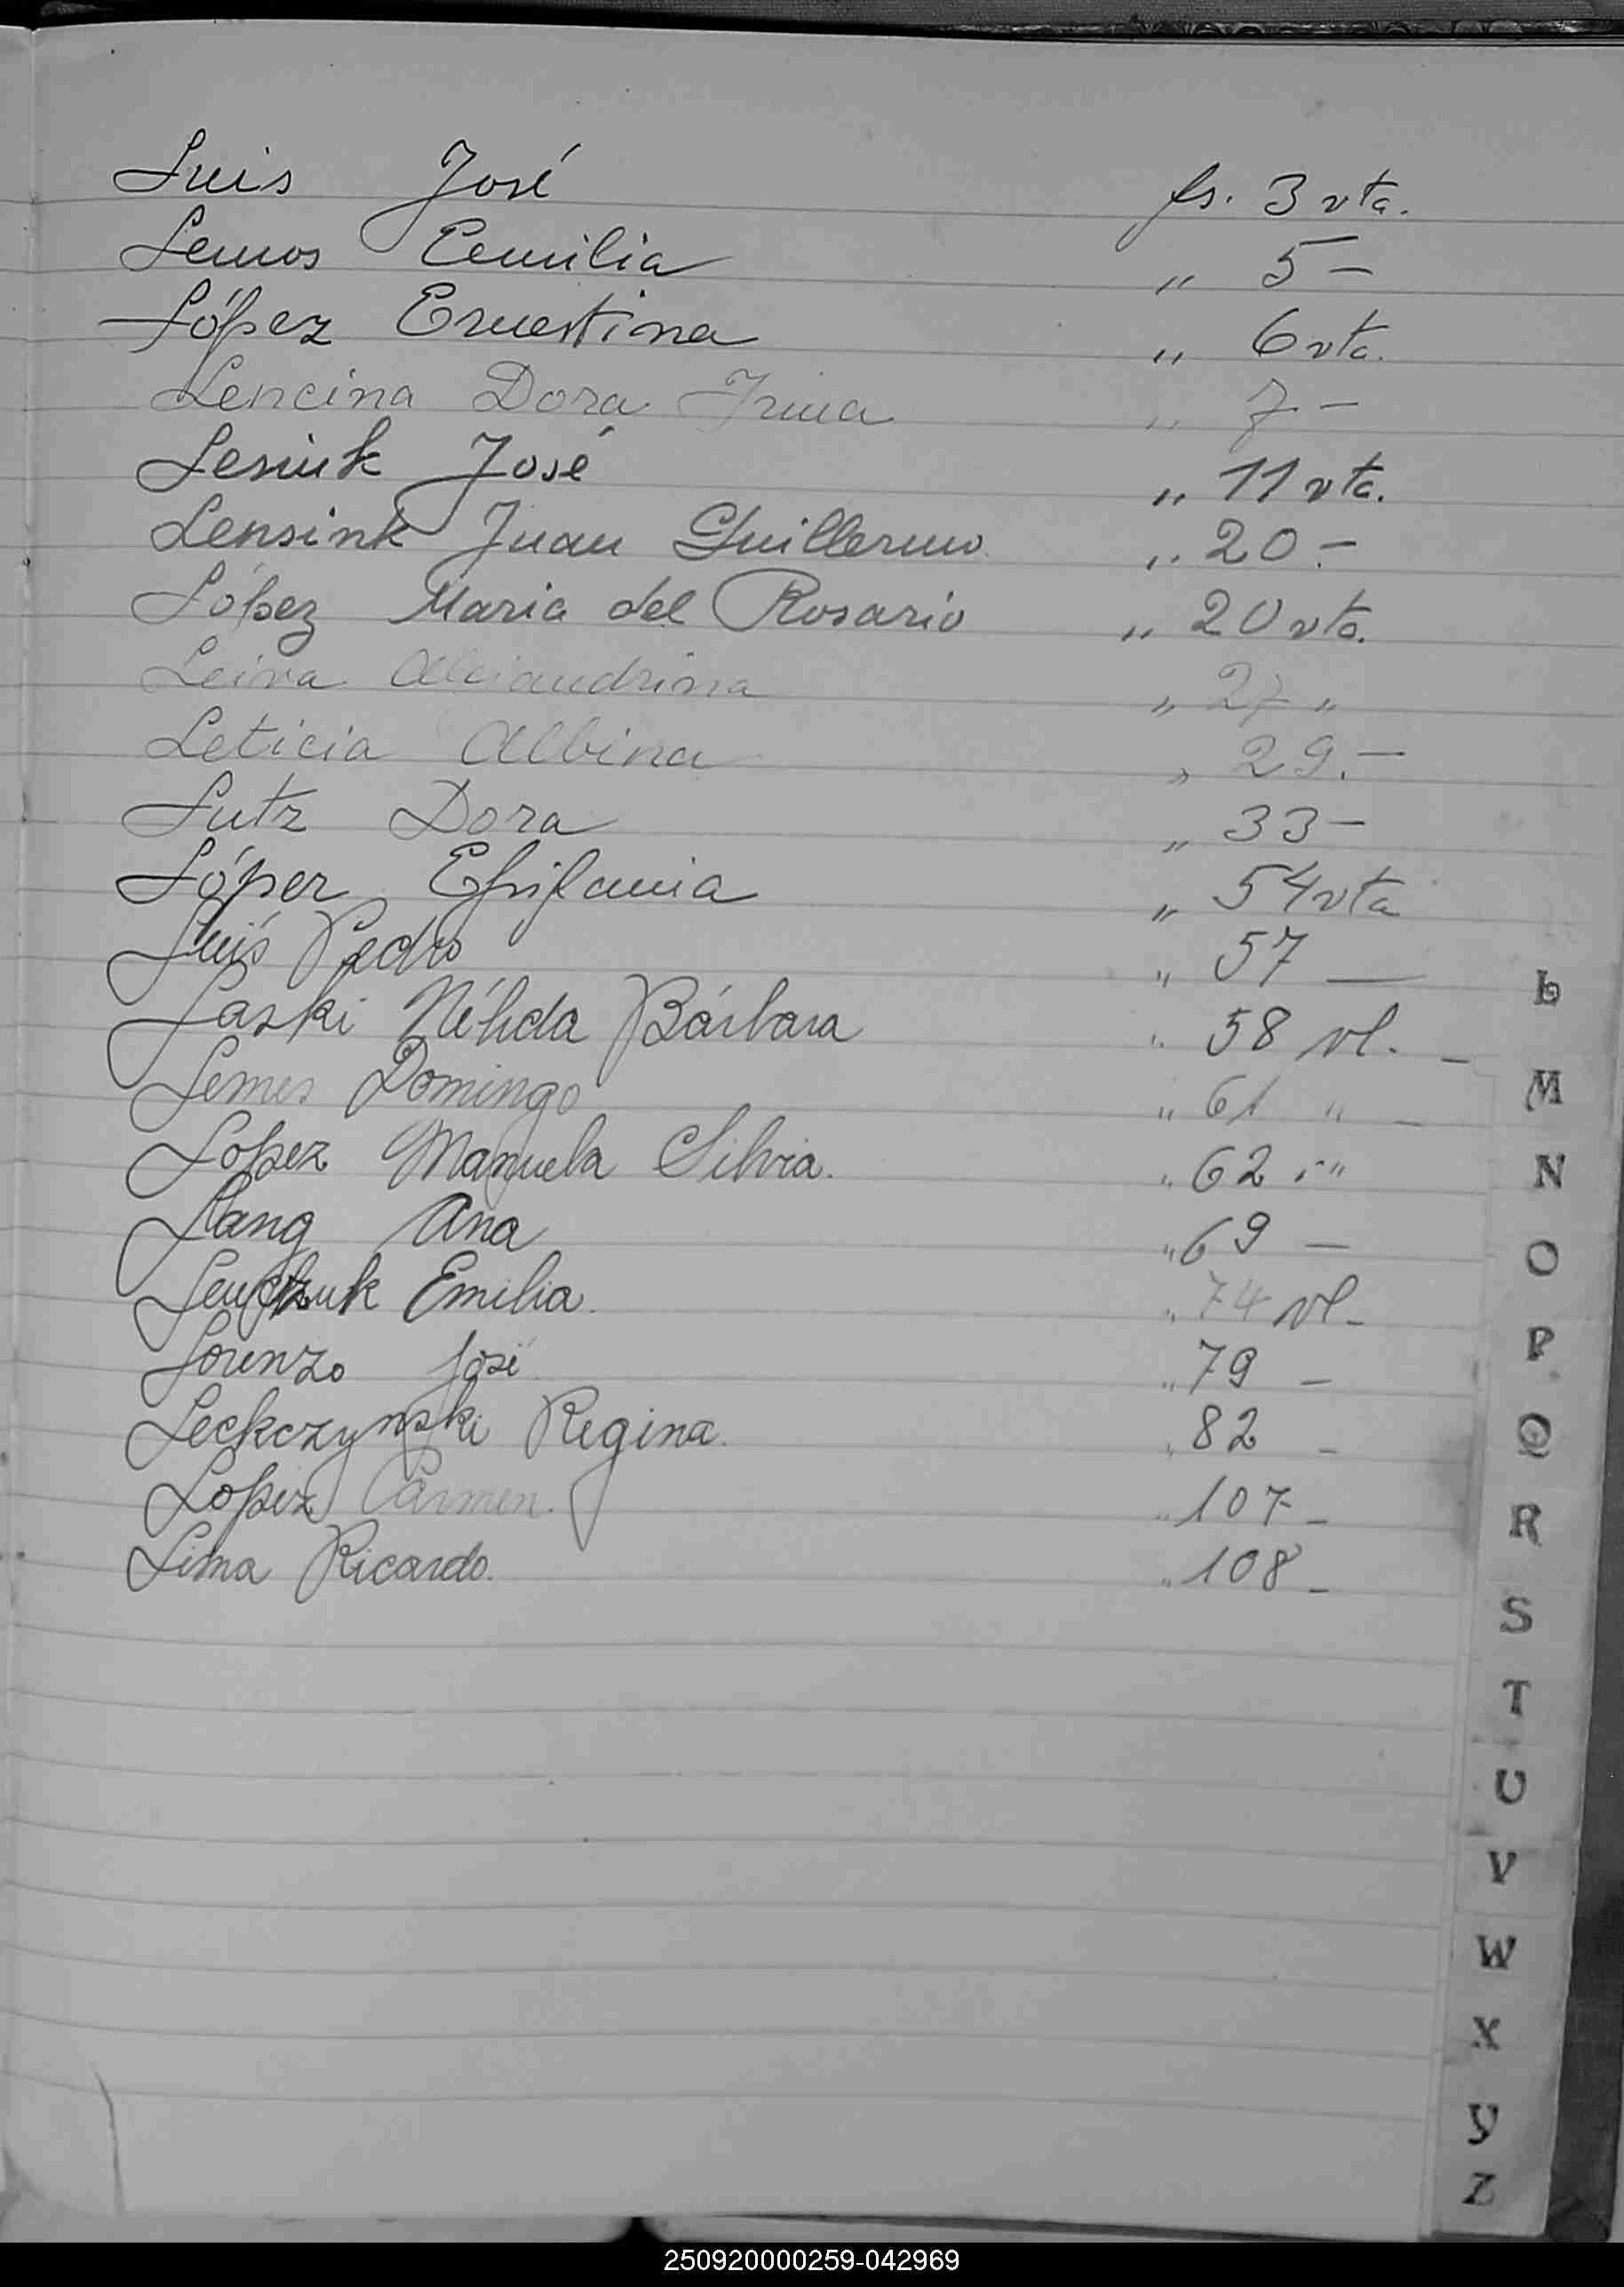 Luis José fs. 3 vta.
Lemos Cemilia „ 5 —
López Ernestina „ 6 vta.
Lencina Dora Irma „ 7 —
Lesiuk José „ 11 vta.
Lensink Juan Guillermo „ 20.—
López Maria del Rosario „ 20 vta.
Leiva Alejandrina „ 27 „
Leticia Albina „ 29.—
Lutz Dora „ 33 —
López Epifania „ 54 vta
Luis Pedro „ 57 —
Laski Nélida Bárbara „ 58 vt. —
Lemes Domingo „ 61 „ —
Lopez Manuela Silvia. „ 62 „
Lang Ana „ 69 —
Emilia. „ 74 vt —
Lorenzo José „ 79 —
Leckczynski Regina. „ 82 —
Lopez Carmen. „ 107 —
Lima Ricardo. „ 108 —
L
M
N
O
P
Q
R
S
T
U
V
W
X
Y
Z
250920000259-042969